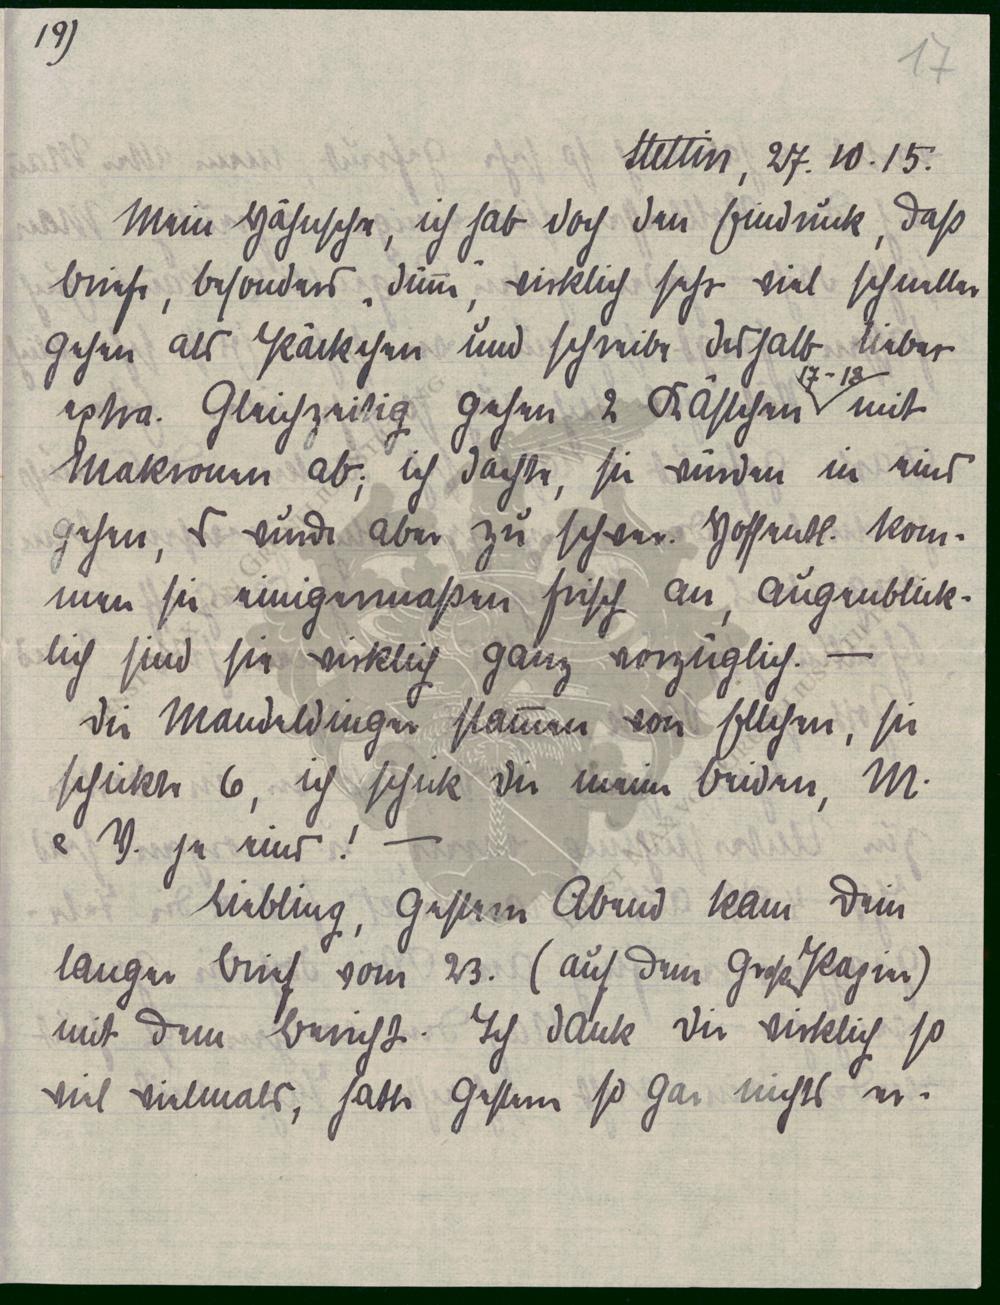 19)
17
Stettin, 27. 10. 15.
Mein Hähnsche, ich hab doch den Eindruck, daß
Briefe, besonders "dünne", wirklich sehr viel schneller
gehen als Päckchen und schreibe deshalb lieber
extra. Gleichzeitig gehen 2 Kästchen 17-18 mit
Makronen ab; ich dachte, sie würden in eins
gehen, s' wurde aber zu schwer. Hoffentl. kom-
men sie einigermaßen frisch an, augenblick-
lich sind sie wirklich ganz vorzüglich. —
Die Mandeldinger stam̄en von Ellchen, sie
schickte 6, ich schick Dir meine beiden, M.
e V. je eins! —
Liebling, Gestern Abend kam Dein
langer Brief vom 23. (auf dem Groß Papier)
mit dem Bericht. Ich dank Dir wirklich so
viel vielmals, hatte Gestern so gar nichts er-